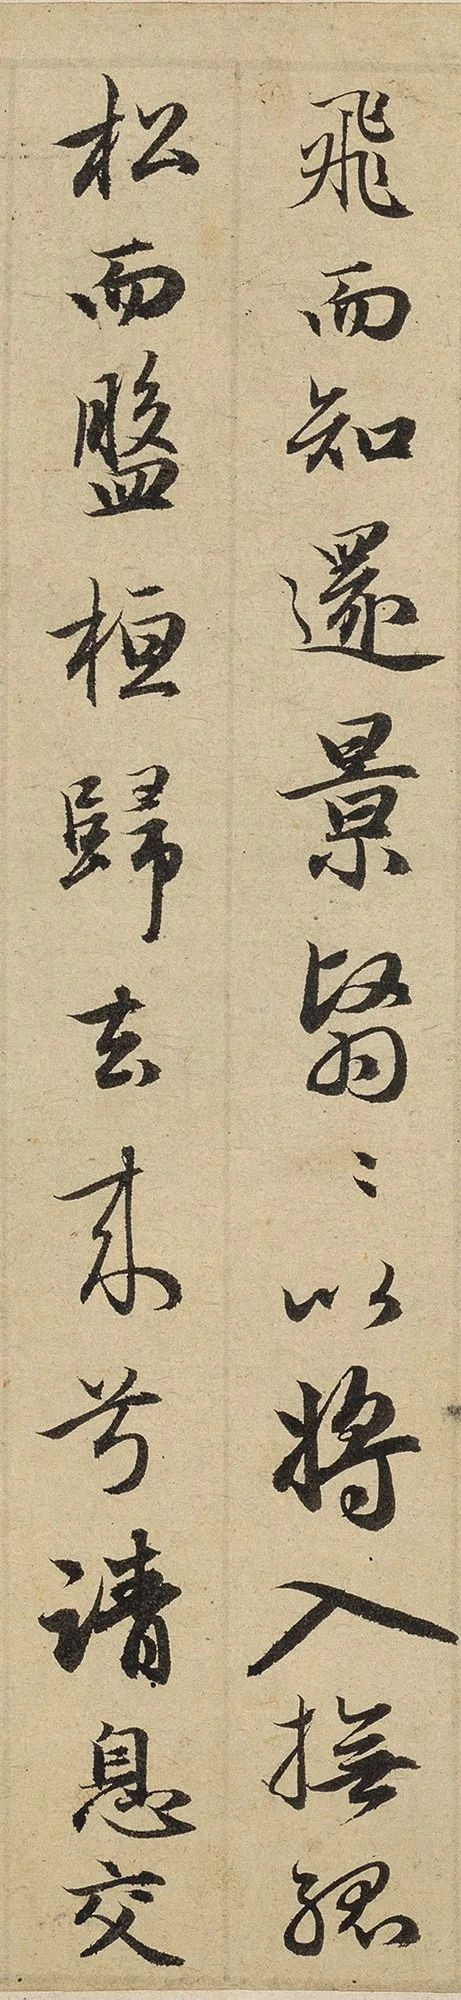 飛而知還景翳〻以將入撫孤
松而盤桓歸去来兮請息交